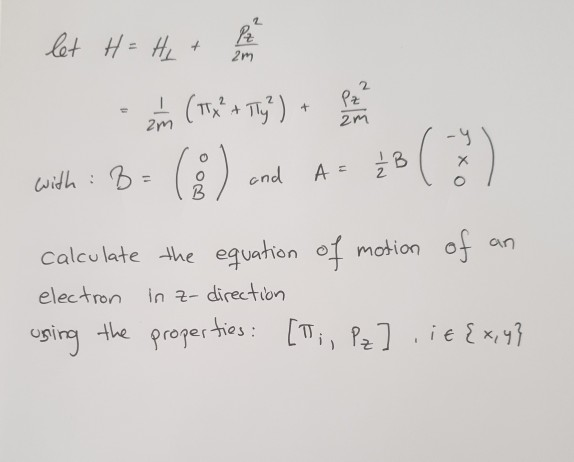 let H = H⊥ + Pz²/2m
= 1/2m (πx² + πy²) + Pz²/2m
with : B = (0 0 B) and A = 1/2 B (-y x 0)
calculate the equation of motion of an
electron in z-direction
using the properties: [πi, Pz] , i ∈ {x,y}